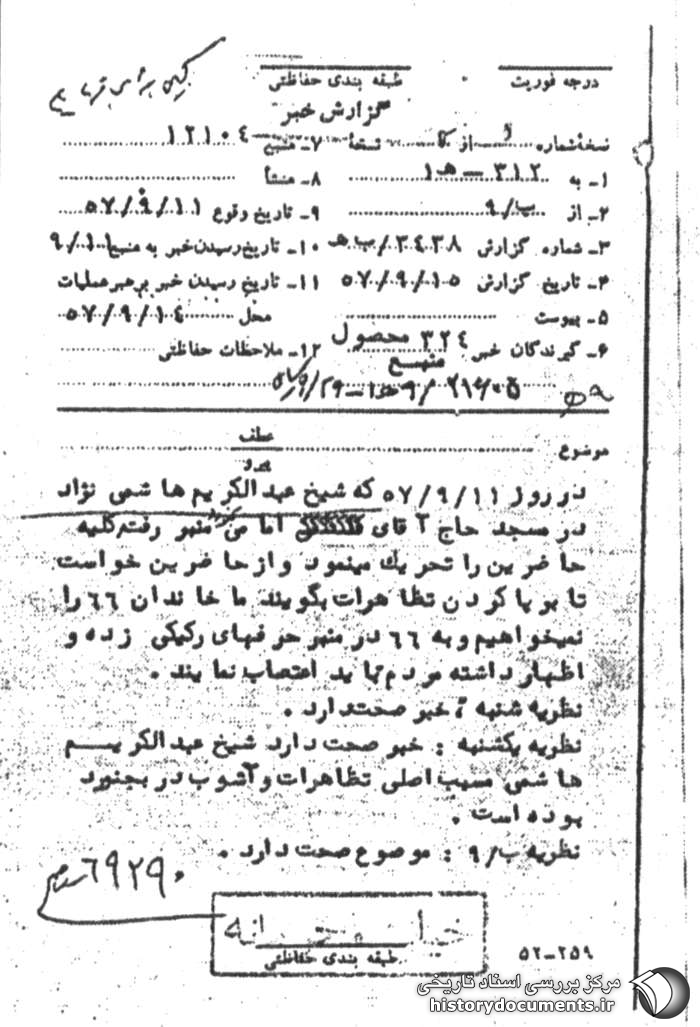 درجه فوریت
طبقه بندی حفاظتی
گزارش خبر
نسخهٔ شماره از نسخهٔ
۱- به ۳۱۲ - ه‍ ۱
۲- از ۹/ب
۳- شماره گزارش ۳۴۳۸/ب ه‍
۴- تاریخ گزارش ۵۷/۹/۱۵
۵- پیوست
۶- گیرندگان خبر ۳۲۴ محصول
منبع
۷- منبع ۱۲۱۰۴
۸- منشأ
۹- تاریخ وقوع ۵۷/۹/۱۱
۱۰- تاریخ رسیدن خبر به منبع ۹/۱۱
۱۱- تاریخ رسیدن خبر برهبر عملیات
محل ۵۷/۹/۱۴
۱۲- ملاحظات حفاظتی
موضوع
عطف
پیرو
در روز ۵۷/۹/۱۱ که شیخ عبدالکریم هاشمی نژاد
در مسجد حاج آقای امامی منبر رفته کلیه
حاضرین را تحریک مینمود و از حاضرین خواست
تا بر پا کردن تظاهرات بگویند ما خاندان ۶۶ را
نمیخواهیم و به ۶۶ در منبر حرفهای رکیکی زده و
اظهار داشته مردم باید اعتصاب نمایند .
نظریه شنبه : خبر صحت دارد .
نظریه یکشنبه : خبر صحت دارد شیخ عبدالکریم
هاشمی مسبب اصلی تظاهرات و آشوب در بجنورد
بوده است .
نظریه ۹/ب : موضوع صحت دارد .
۶۹۲۹۰
خیلی محرمانه
طبقه بندی حفاظتی
۵۲-۲۵۹
مرکز بررسی اسناد تاریخی
historydocuments.ir